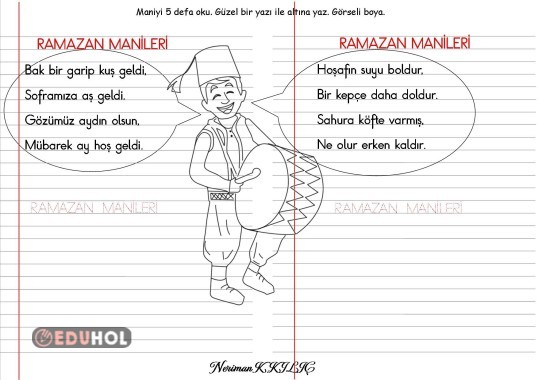 Maniyi 5 defa oku. Güzel bir yazı ile altına yaz. Görseli boya.
RAMAZAN MANİLERİ
Bak bir garip kuş geldi,
Soframıza aş geldi.
Gözümüz aydın olsun,
Mübarek ay hoş geldi.
RAMAZAN MANİLERİ
RAMAZAN MANİLERİ
Hoşafın suyu boldur,
Bir kepçe daha doldur.
Sahura köfte varmış,
Ne olur erken kaldır.
RAMAZAN MANİLERİ
EDUHOL